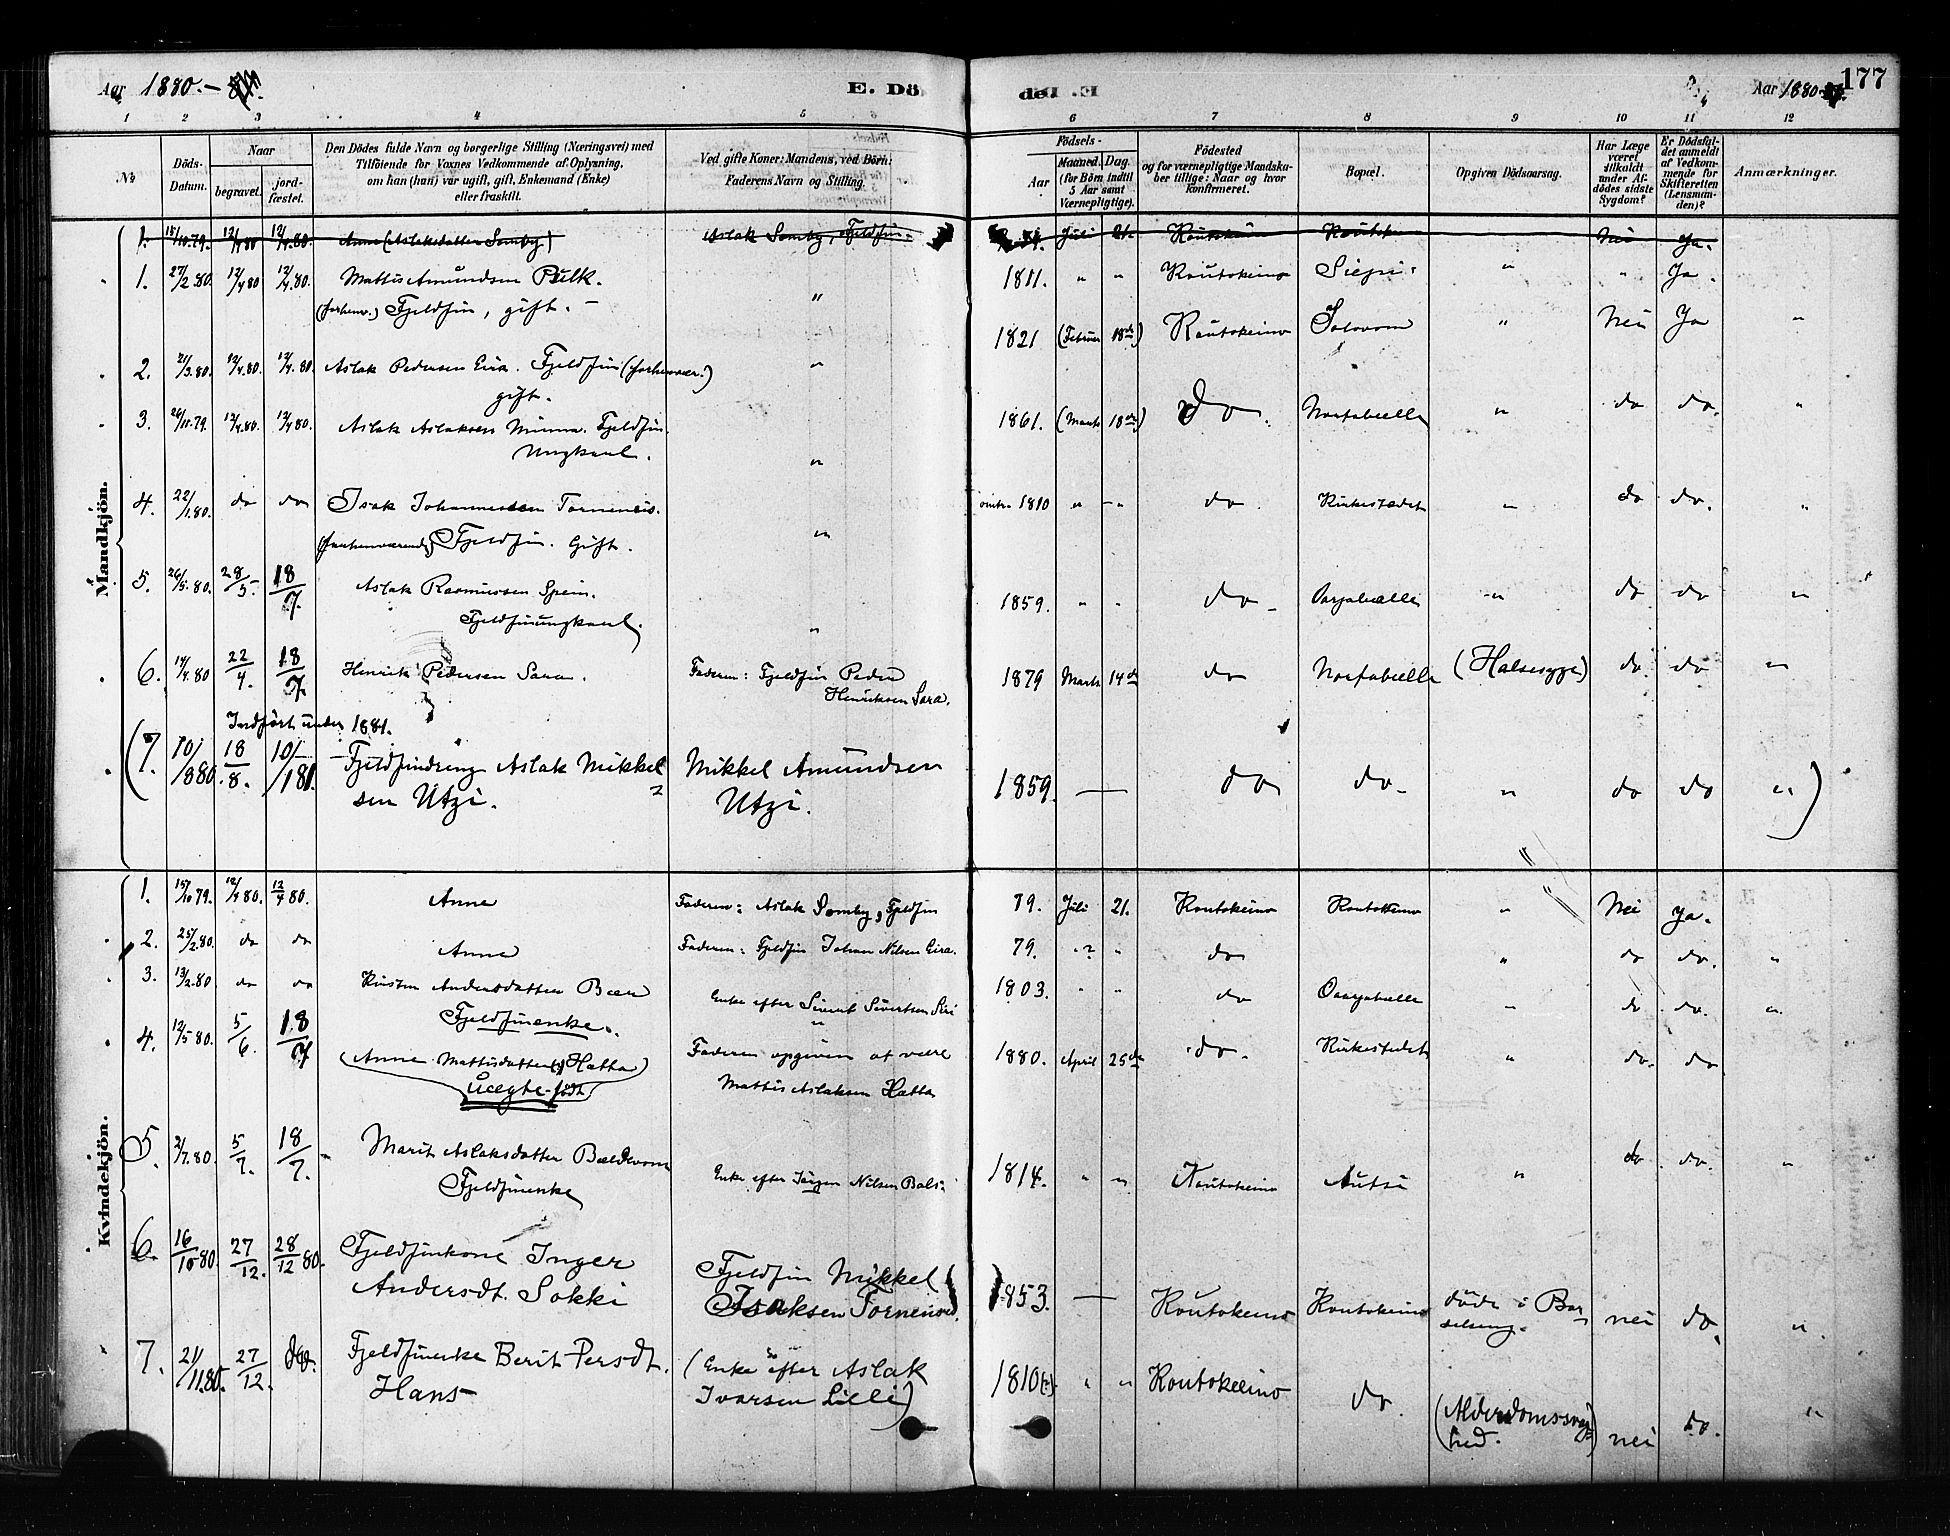 Aar 1880.–
E. Dö
de
E. Dö
Aar 1880
177
1 2 3 4 5 6 6 7 8 9 10 11 12
No
Döds-Datum.
Naar
begravet.
jord-fæstet.
Den Dödes fulde Navn og borgerlige Stilling (Næringsvei) med
Tilföiende for Voxnes Vedkommende af Oplysning,
om han (hun) var ugift, gift, Enkemand (Enke)
eller fraskilt.
Ved gifte Koner: Mandens, ved Börn:
Faderens Navn og Stilling.
Födsels-
Aar
Maaned. Dag.
(for Börn indtil
5 Aar samt
Værnepligtige).
Födested
og for værnepligtige Mandska-
ber tillige: Naar og hvor
konfirmeret.
Bopæl.
Opgiven Dödsaarsag.
Har Læge
været
tilkaldt
under Af-
dödes sidste
Sygdom?
Er Dödsfal-
det anmeldt
af Vedkom-
mende for
Skifteretten
(Lensman-
den)?
Anmærkninger.
Mandkjön.
1. 15/10.79. 12/4 80 12/4.80. Anne (Aslaksdatter Somby) Aslak Somby, Fjeldfin. Juli 21. Koutokeino Koutoke Nei Ja.
1. 27/2.80. 12/4 80 12/4.80. Mattis Amundsen Pulk. 1811. " " Koutokeino Siepi " " Ja.
(forhenv.) Fjeldfin, gift. – "
1821 (Februar 18de) Koutokeino Solovom " Nei Ja "
2. 21/3.80. 12/4.80. 12/4.80 Aslak Pedersen Eira. Fjeldfin (forhenvær.) "
gift.
3. 26/11.79. 12/4.80. 12/4 80. Aslak Aslaksen Minna. Fjeldfin. 1861. (Marts 18de) do. Nortabielle " do do. "
Ungkarl. "
4. 22/1.80. do do Isak Johannessen Torneneis. 1810 " - " do. Kirkestedet " do do. "
(forhenværende) Fjeldfin. Gift. "
5. 26/5.80. 28/5. 18/7. Aslak Rasmussen Spein. 1859. " " do - " do do "
Fjeldfinungkarl. "
6. 14/4.80 22/4. 18/7. Henrik Pedersen Sara. Faderen: Fjeldfin Peder 1879 Marts 14de do Nortabielle (Halsesyge) do do "
Henriksen Sara.
Indført under 1881.
(7. 10/880. 18/8. 10/181. Fjeldfindreng Aslak Mikkel Mikkel Amundsen 1859. — do do - " do do " )
sen Utzi. Utzi.
Kvindekjön.
1. 15/10 79. 12/4 80. 12/4 80. Anne Faderen: Aslak Somby, Fjeldfin 79. Juli 21. Koutokeino Koutokeino " Nei Ja.
2. 25/2.80. do do Anne Faderen: Fjeldfin Johan Nilsen Eira. 79. "?" " do " do do. "
3. 13/2.80 do do Kirsten Andersdatter Bær 1803. " " do " do do. "
Fjeldfinenke. Enke efter Sivert Sivertsen Siri
"
4. 12/5 80. 5/6. 18/7 (Anne Mattisdatter(!) Hætta) Faderen opgiven at være 1880. April 25de do. Kirkestedet " do. do
uægte født Mattis Aslaksen Hætta
5. 2/7.80. 5/7. 18/7. Marit Aslaksdatter Bældevom 1814. " " Koutokeino Autsi " do do. "
Fjeldfinenke Enke efter Jörgen Nilsen Bals.
6. 16/10 80. 27/12. 28/12 80. Fjeldfinkone Inger Fjeldfin Mikkel 1853. — Koutokeino Koutokeino døde i Bar- nei do. "
Andersdt. Sokki Isaksen Torneneis. selseng.
7. 21/11.80. 27/12. do. Fjeldfinenke Berit Persdt. (Enke efter Aslak 1810(?) " " Koutokeino do. (Alderdomssvag-
Hans Ivarsen Lilli) hed. nei do. "